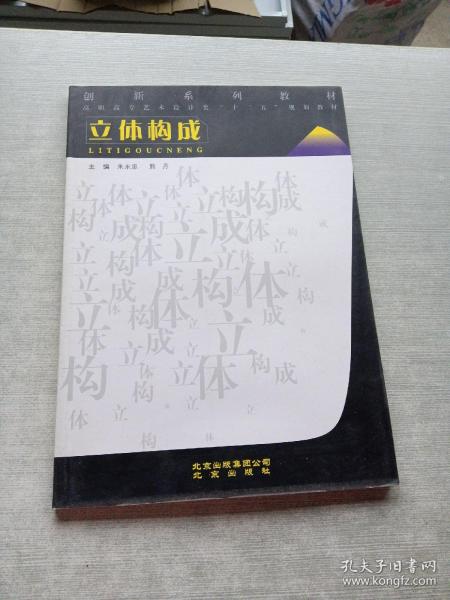 创新系列教材
高职高专艺术设计类“十二五”规划教材
立体构成
LITIGOUCNENG
主 编 朱永忠 熊 丹
立体构成
北京出版集团公司
北京出版社
孔夫子旧书网
www.kongfz.com